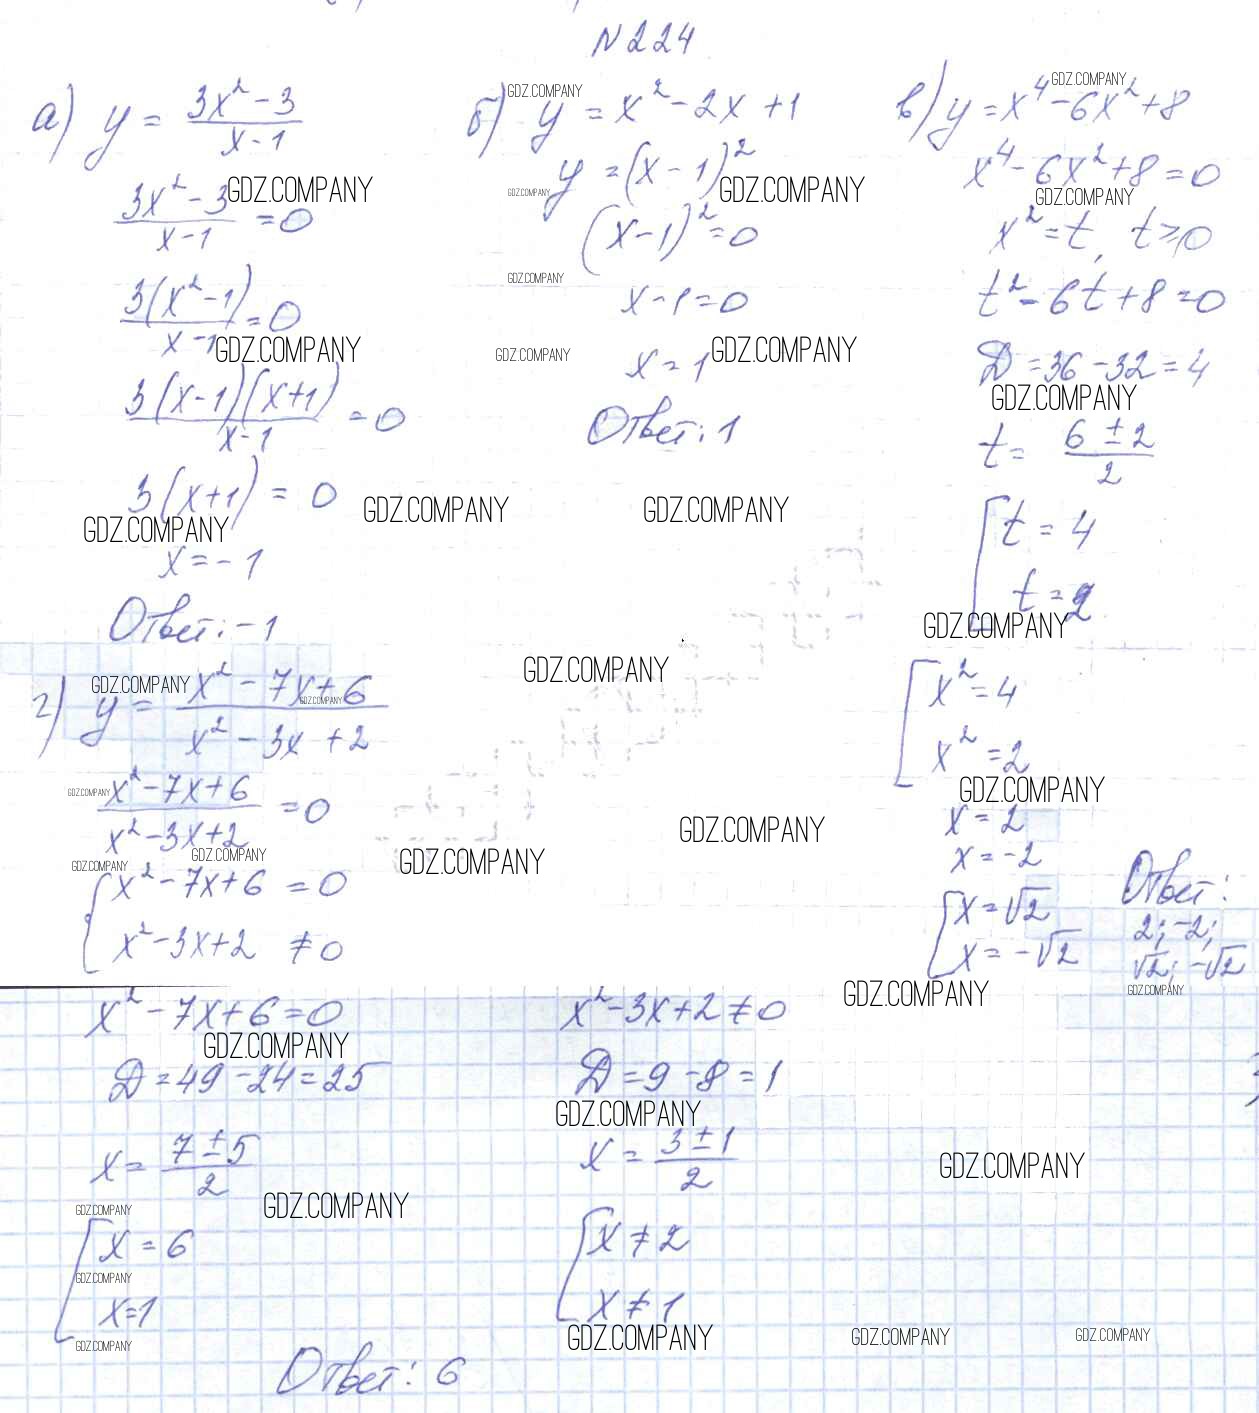 N 224
а) y = (3x² - 3)/(x - 1)
(3x² - 3)/(x - 1) = 0
3(x² - 1)/(x - 1) = 0
3(x - 1)(x + 1)/(x - 1) = 0
3(x + 1) = 0
x = -1
Ответ: -1
б) y = x² - 2x + 1
y = (x - 1)²
(x - 1)² = 0
x - 1 = 0
x = 1
Ответ: 1
в) y = x⁴ - 6x² + 8
x⁴ - 6x² + 8 = 0
x² = t, t ≥ 0
t² - 6t + 8 = 0
D = 36 - 32 = 4
t = (6 ± 2)/2
[ t = 4
t = 2
[ x² = 4
x² = 2
x = 2
x = -2
[ x = √2
x = -√2
Ответ:
2; -2;
√2; -√2
г) y = (x² - 7x + 6)/(x² - 3x + 2)
(x² - 7x + 6)/(x² - 3x + 2) = 0
{ x² - 7x + 6 = 0
x² - 3x + 2 ≠ 0
x² - 7x + 6 = 0
D = 49 - 24 = 25
x = (7 ± 5)/2
[ x = 6
x = 1
x² - 3x + 2 ≠ 0
D = 9 - 8 = 1
x = (3 ± 1)/2
[ x ≠ 2
x ≠ 1
Ответ: 6
GDZ.COMPANY